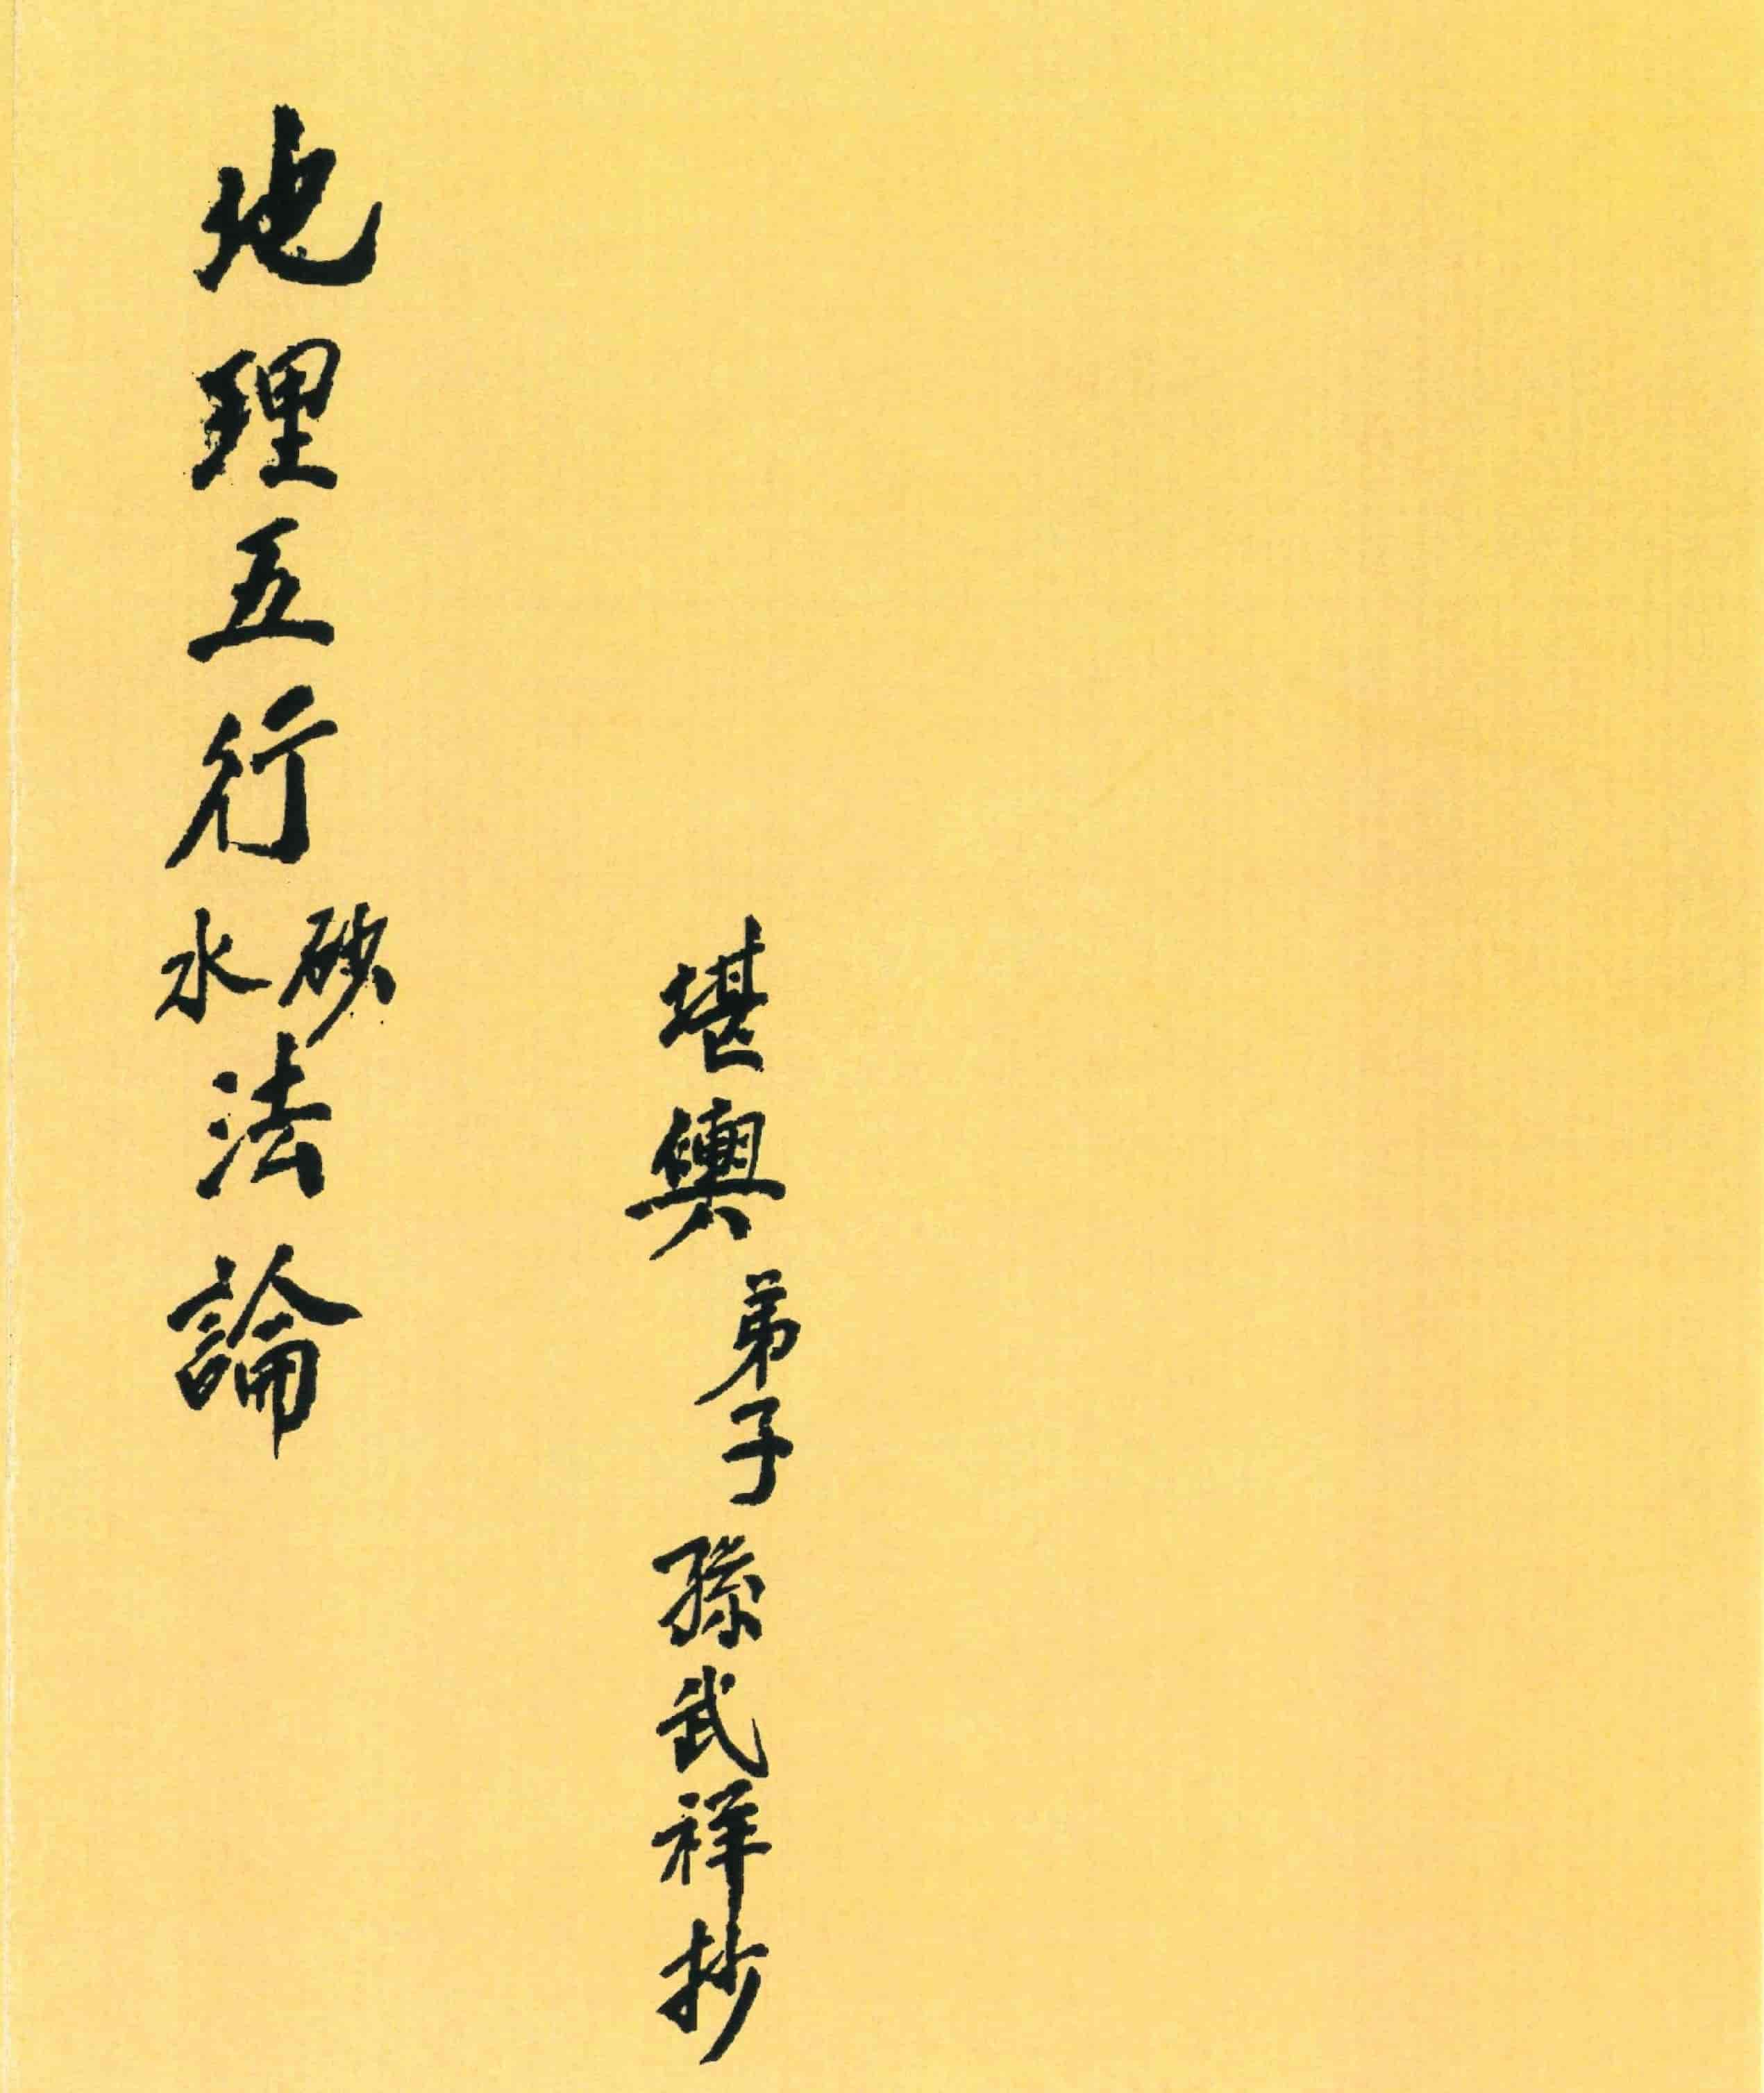 堪輿弟子孫武祥抄
地理五行砂水法論